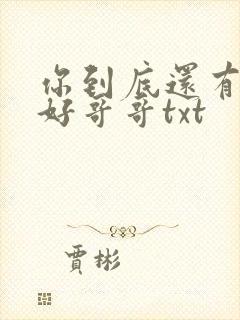 你到底還有
好哥哥txt
賈彬